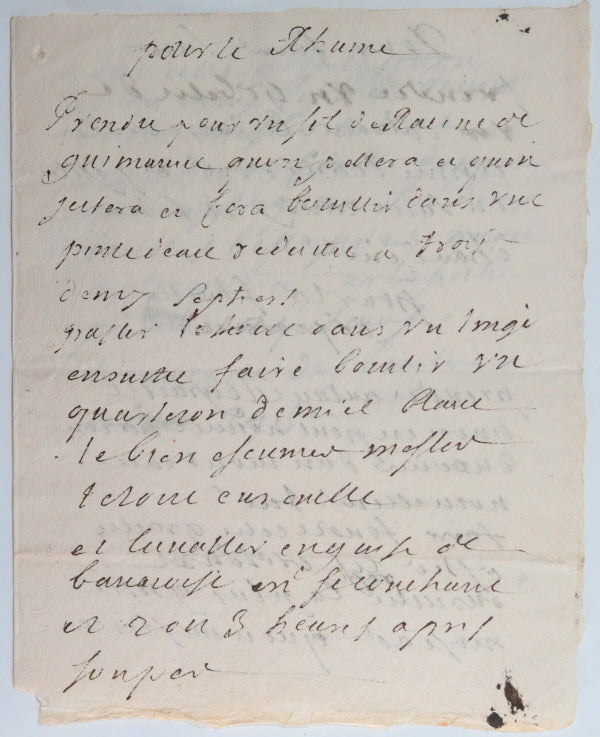 pour le Rhume
Prendre pour un sol de Racine de
guimauve quon ... et quon
jettera et fera bouillir dans une
pinte deau reduitte a trois
demy septiers
passer le tout dans un linge
ensuitte faire bouillir un
quarteron de miel blanc
le bien ecumer mesler
le tout ensemble
et lavaller en guise de
bavaroise en se couchant
et 2 ou 3 heures apres
souper